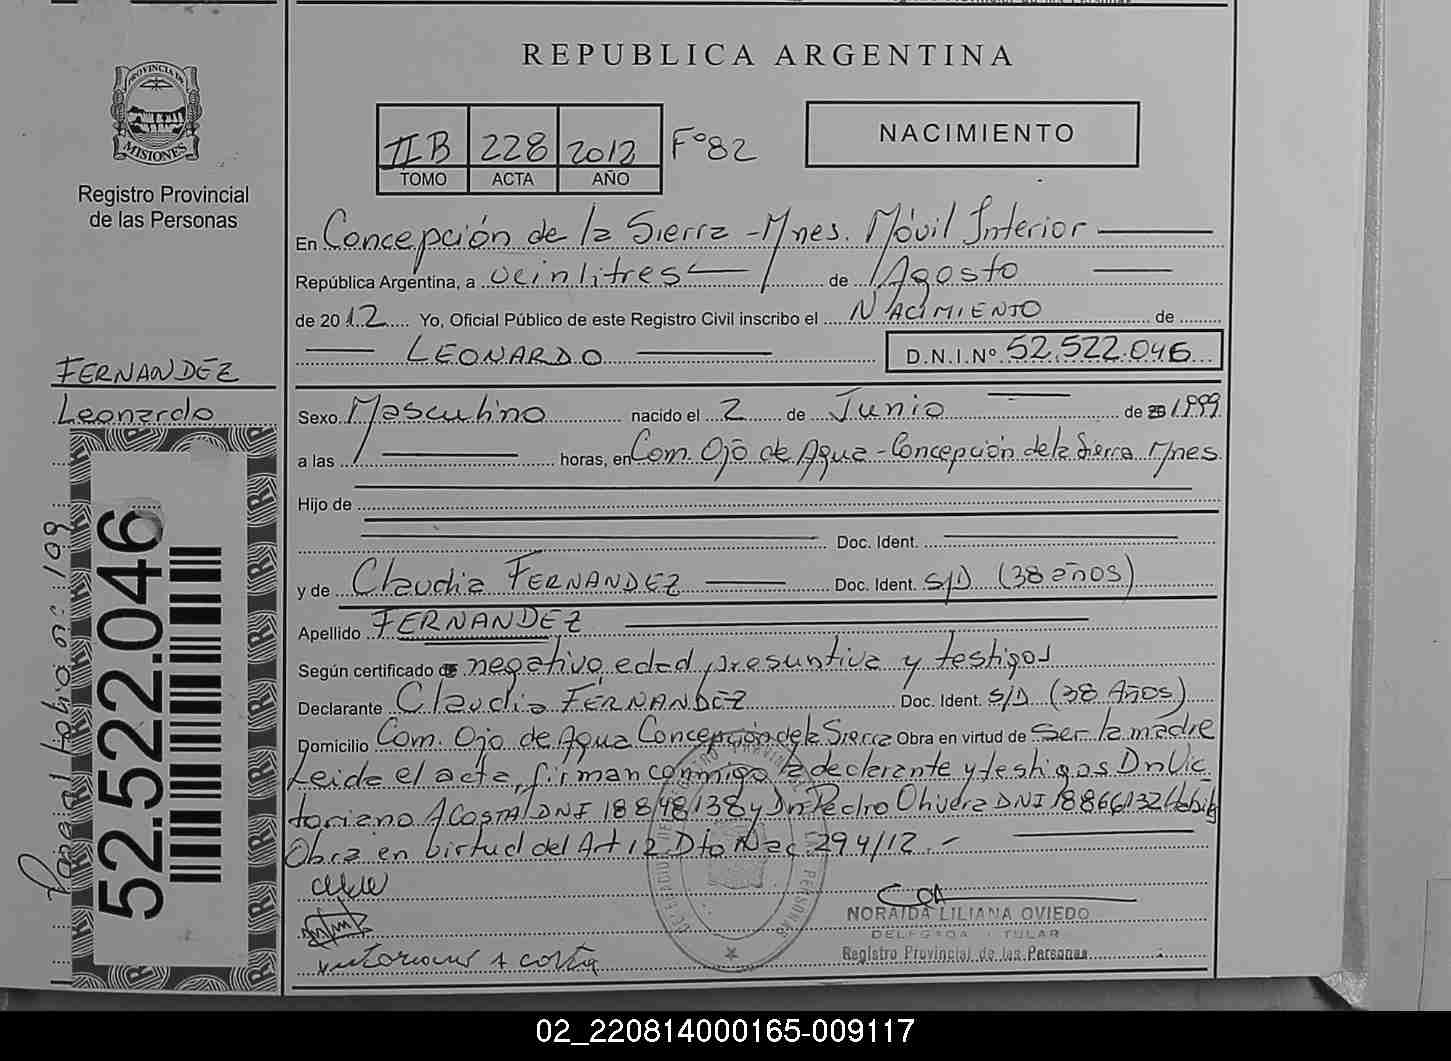 REPUBLICA ARGENTINA
PROVINCIA DE
MISIONES
Registro Provincial
de las Personas
IIB 228 2012 Fº82
TOMO ACTA AÑO
NACIMIENTO
En Concepción de la Sierra - Mnes. Móvil Interior
República Argentina, a veintitres de Agosto
de 2012 Yo, Oficial Público de este Registro Civil inscribo el NACIMIENTO de
LEONARDO D.N.I.Nº 52.522.046
FERNANDEZ
Leonardo
Sexo Masculino nacido el 2 de Junio de 1999
a las horas, en Com. Ojo de Agua - Concepción de la Sierra Mnes
Hijo de
Doc. Ident.
y de Claudia FERNANDEZ Doc. Ident. S/D (38 años)
Apellido FERNANDEZ
Según certificado de negativo, edad presuntiva y testigos
Declarante Claudia FERNANDEZ Doc. Ident. S/D (38 Años)
Domicilio Com. Ojo de Agua Concepción de la Sierra Obra en virtud de Ser la madre
Leida el acta, firman conmigo la declarante y testigos Dn Vic
toriano ACOSTA DNI 18848138 y Dn Pedro Olivera DNI 18866132
Obra en birtud del Art 12 Dto Nac 294/12.-
NORAIDA LILIANA OVIEDO
DELEGADA TITULAR
Registro Provincial de las Personas
52.522.046
folio nº 109
02_220814000165-009117